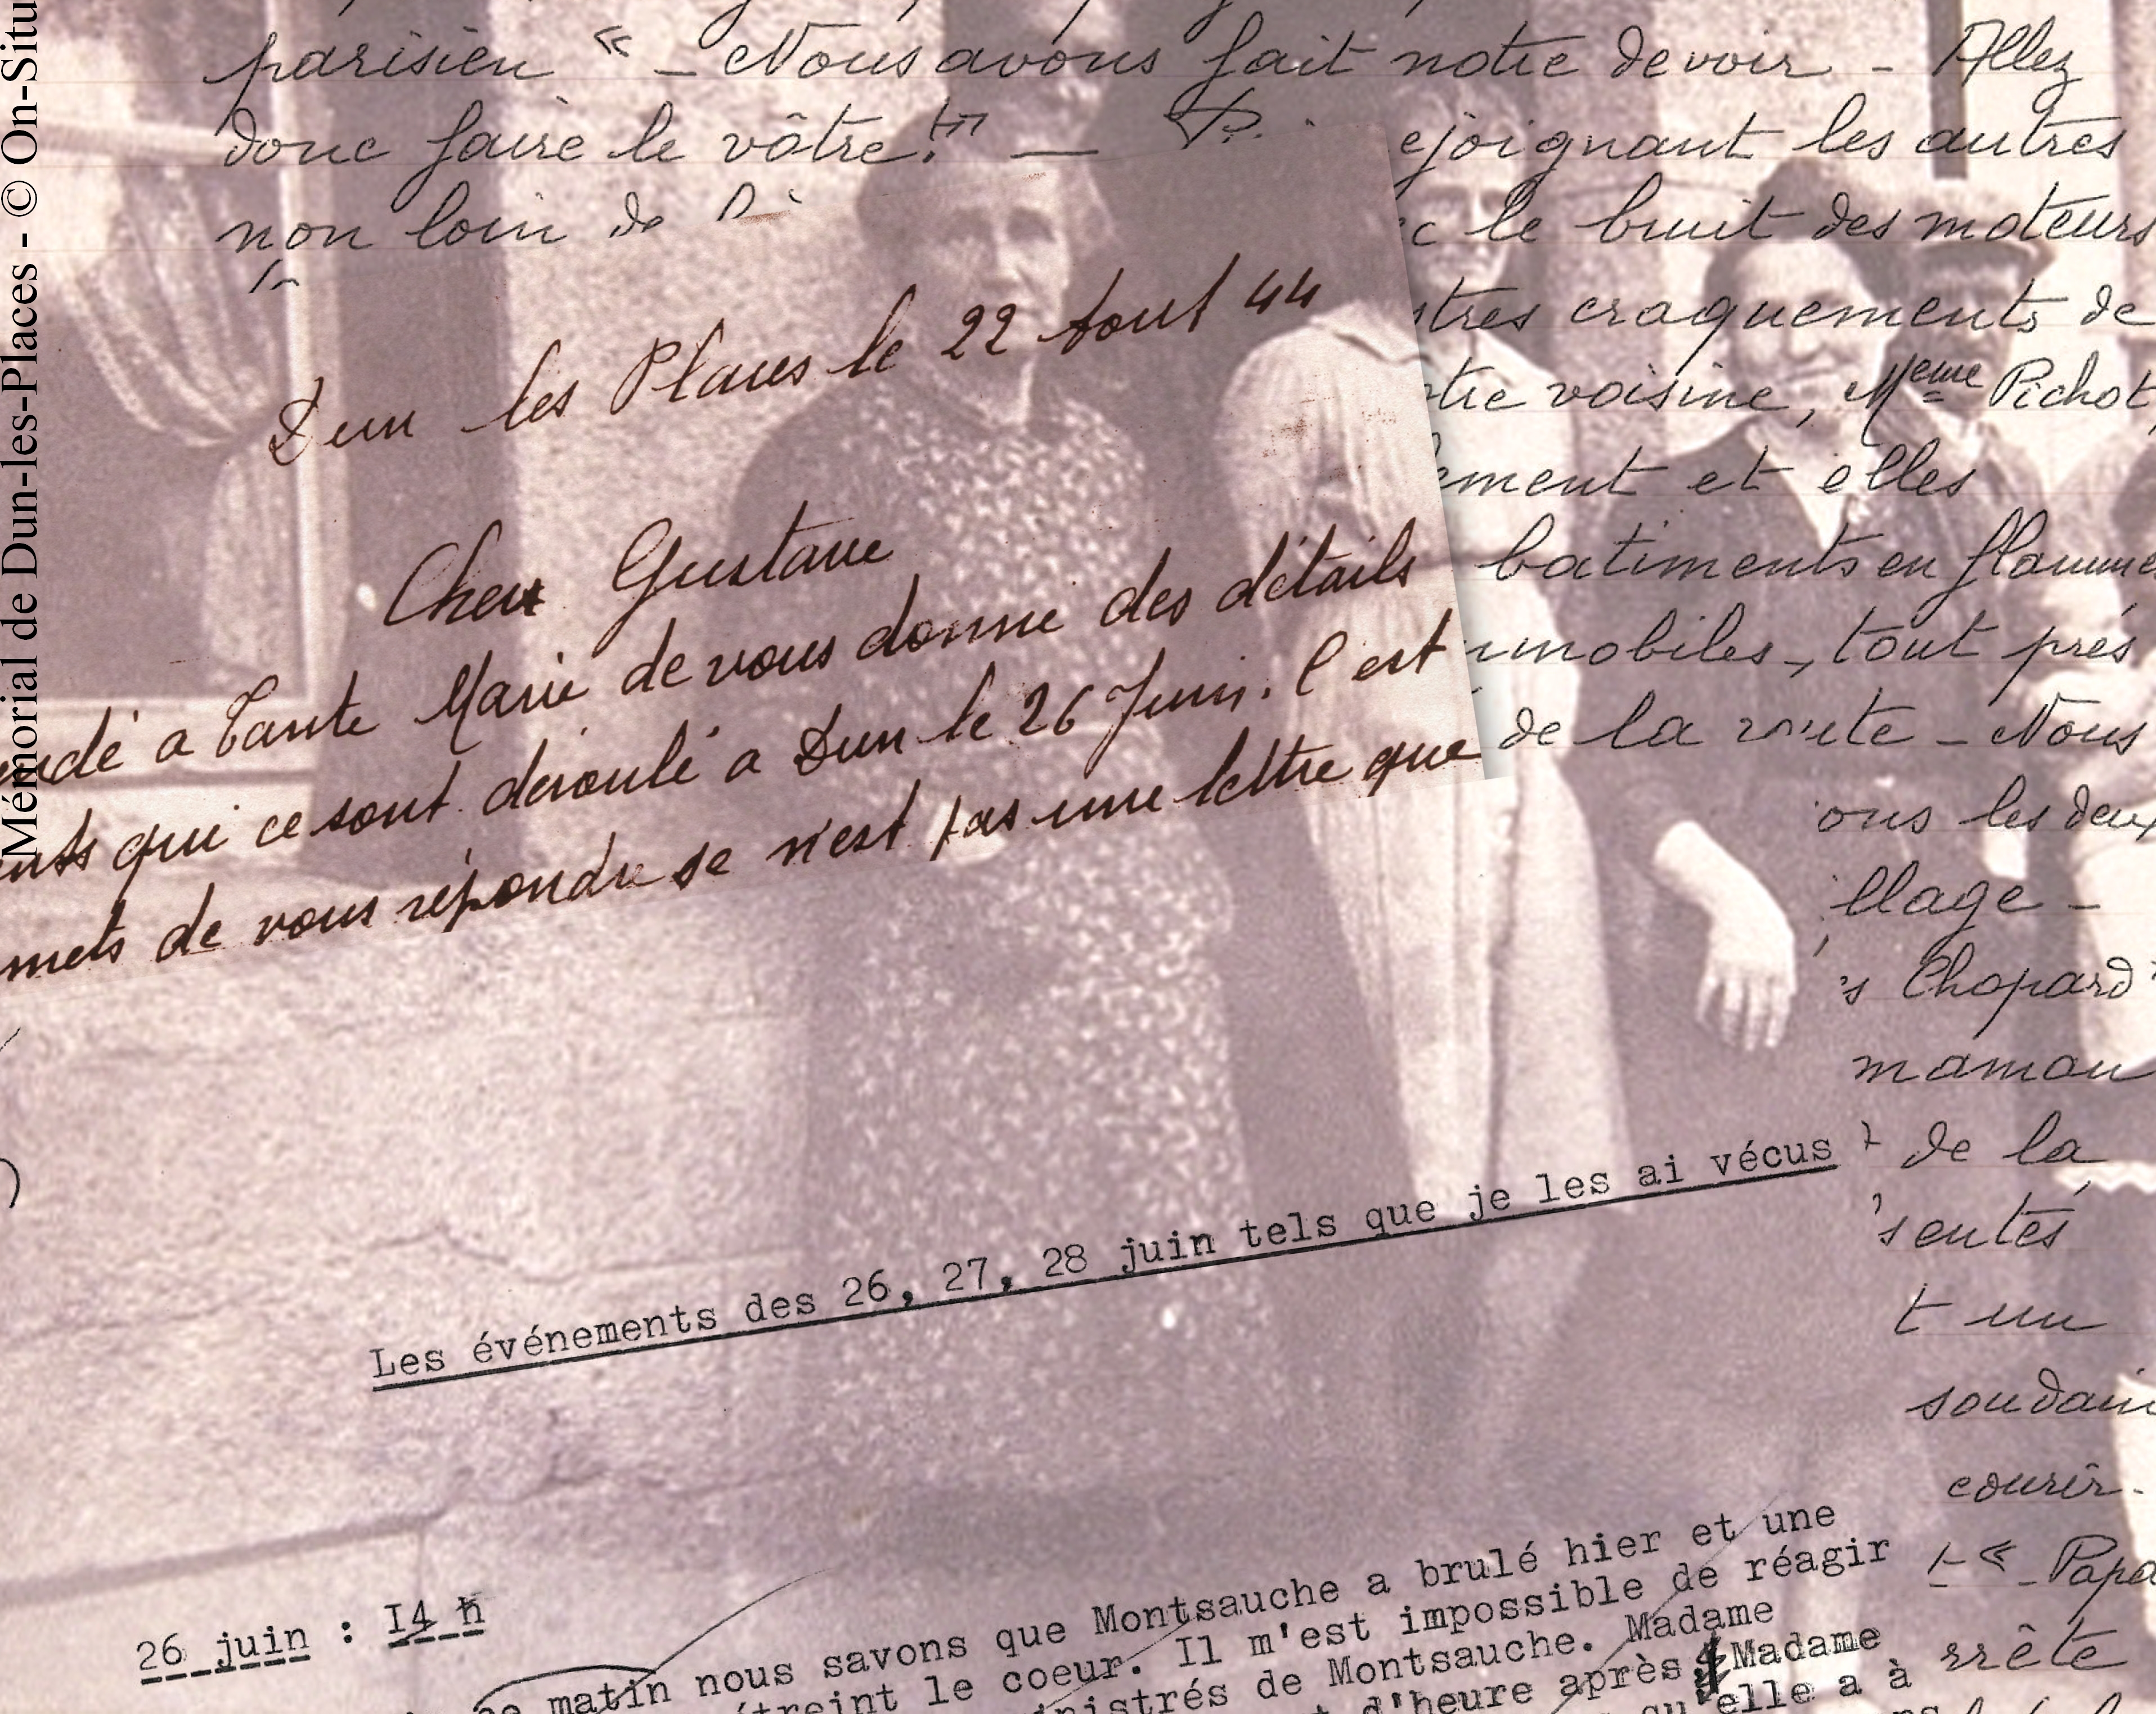 Mémorial de Dun-les-Places - © On-Situ
parisien « – Nous avons fait notre devoir – Allez
donc faire le vôtre !" —
ejoignant les autres
non loin de
le bruit des moteurs
stres craquements de
voisine, Meme Pichot,
ement et elles
batiments en flamme
mobiles, tout près
de la route – Nous
ons les deux
llage –
's Chopard
maman
de la
sentés
t un
soudain
courir.
– « – Papa
rrête
Dun les Places le 22 Aout 44
Cher Gustave
andé a Tante Marie de vous donné des détails
ents qui ce sont déroulé a Dun le 26 Juin. C est
mets de vous répondre se n'est pas une lettre que
Les événements des 26, 27, 28 juin tels que je les ai vécus
26 juin : I4 h
ce matin nous savons que Montsauche a brulé hier et une
étreint le coeur. Il m'est impossible de réagir
inistrés de Montsauche. Madame
t d'heure après Madame
qu'elle a à